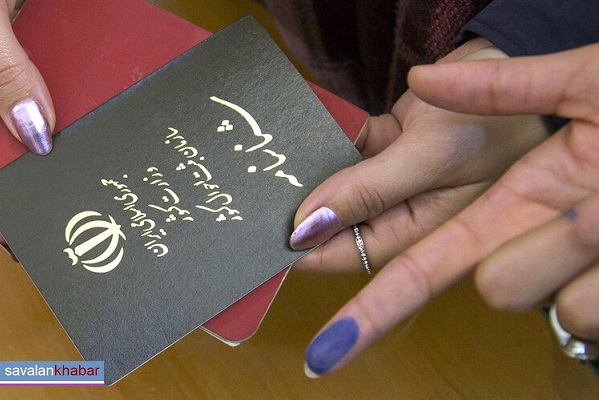 جمهوری اسلامی ایران
وزارت کشور
سازمان ثبت احوال کشور
شناسنامه
savalankhabar